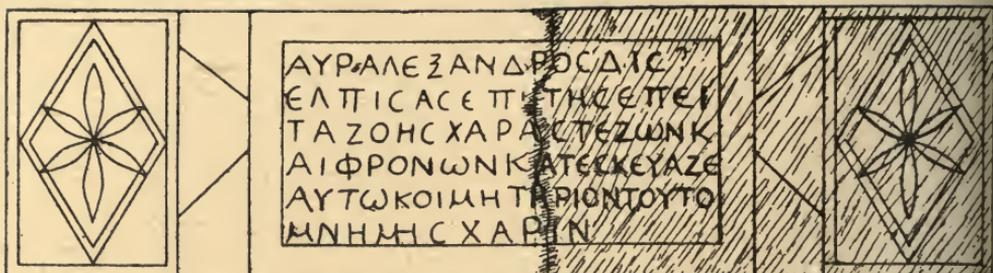 ΑΥΡ·ΑΛΕΞΑΝΔΡΟϹΔΙϹ?
ΕΛΠΙϹΑϹΕΠΙΤΗϹΕΠΕΙ
ΤΑΖΟΗϹΧΑΡΑϹΤΕΖωΝΚ
ΑΙΦΡΟΝωΝΚΑΤΕϹΚΕΥΑΖΕ
ΑΥΤωΚΟΙΜΗΤΗΡΙΟΝΤΟΥΤΟ
ΜΝΗΜΗϹΧΑΡΙΝ